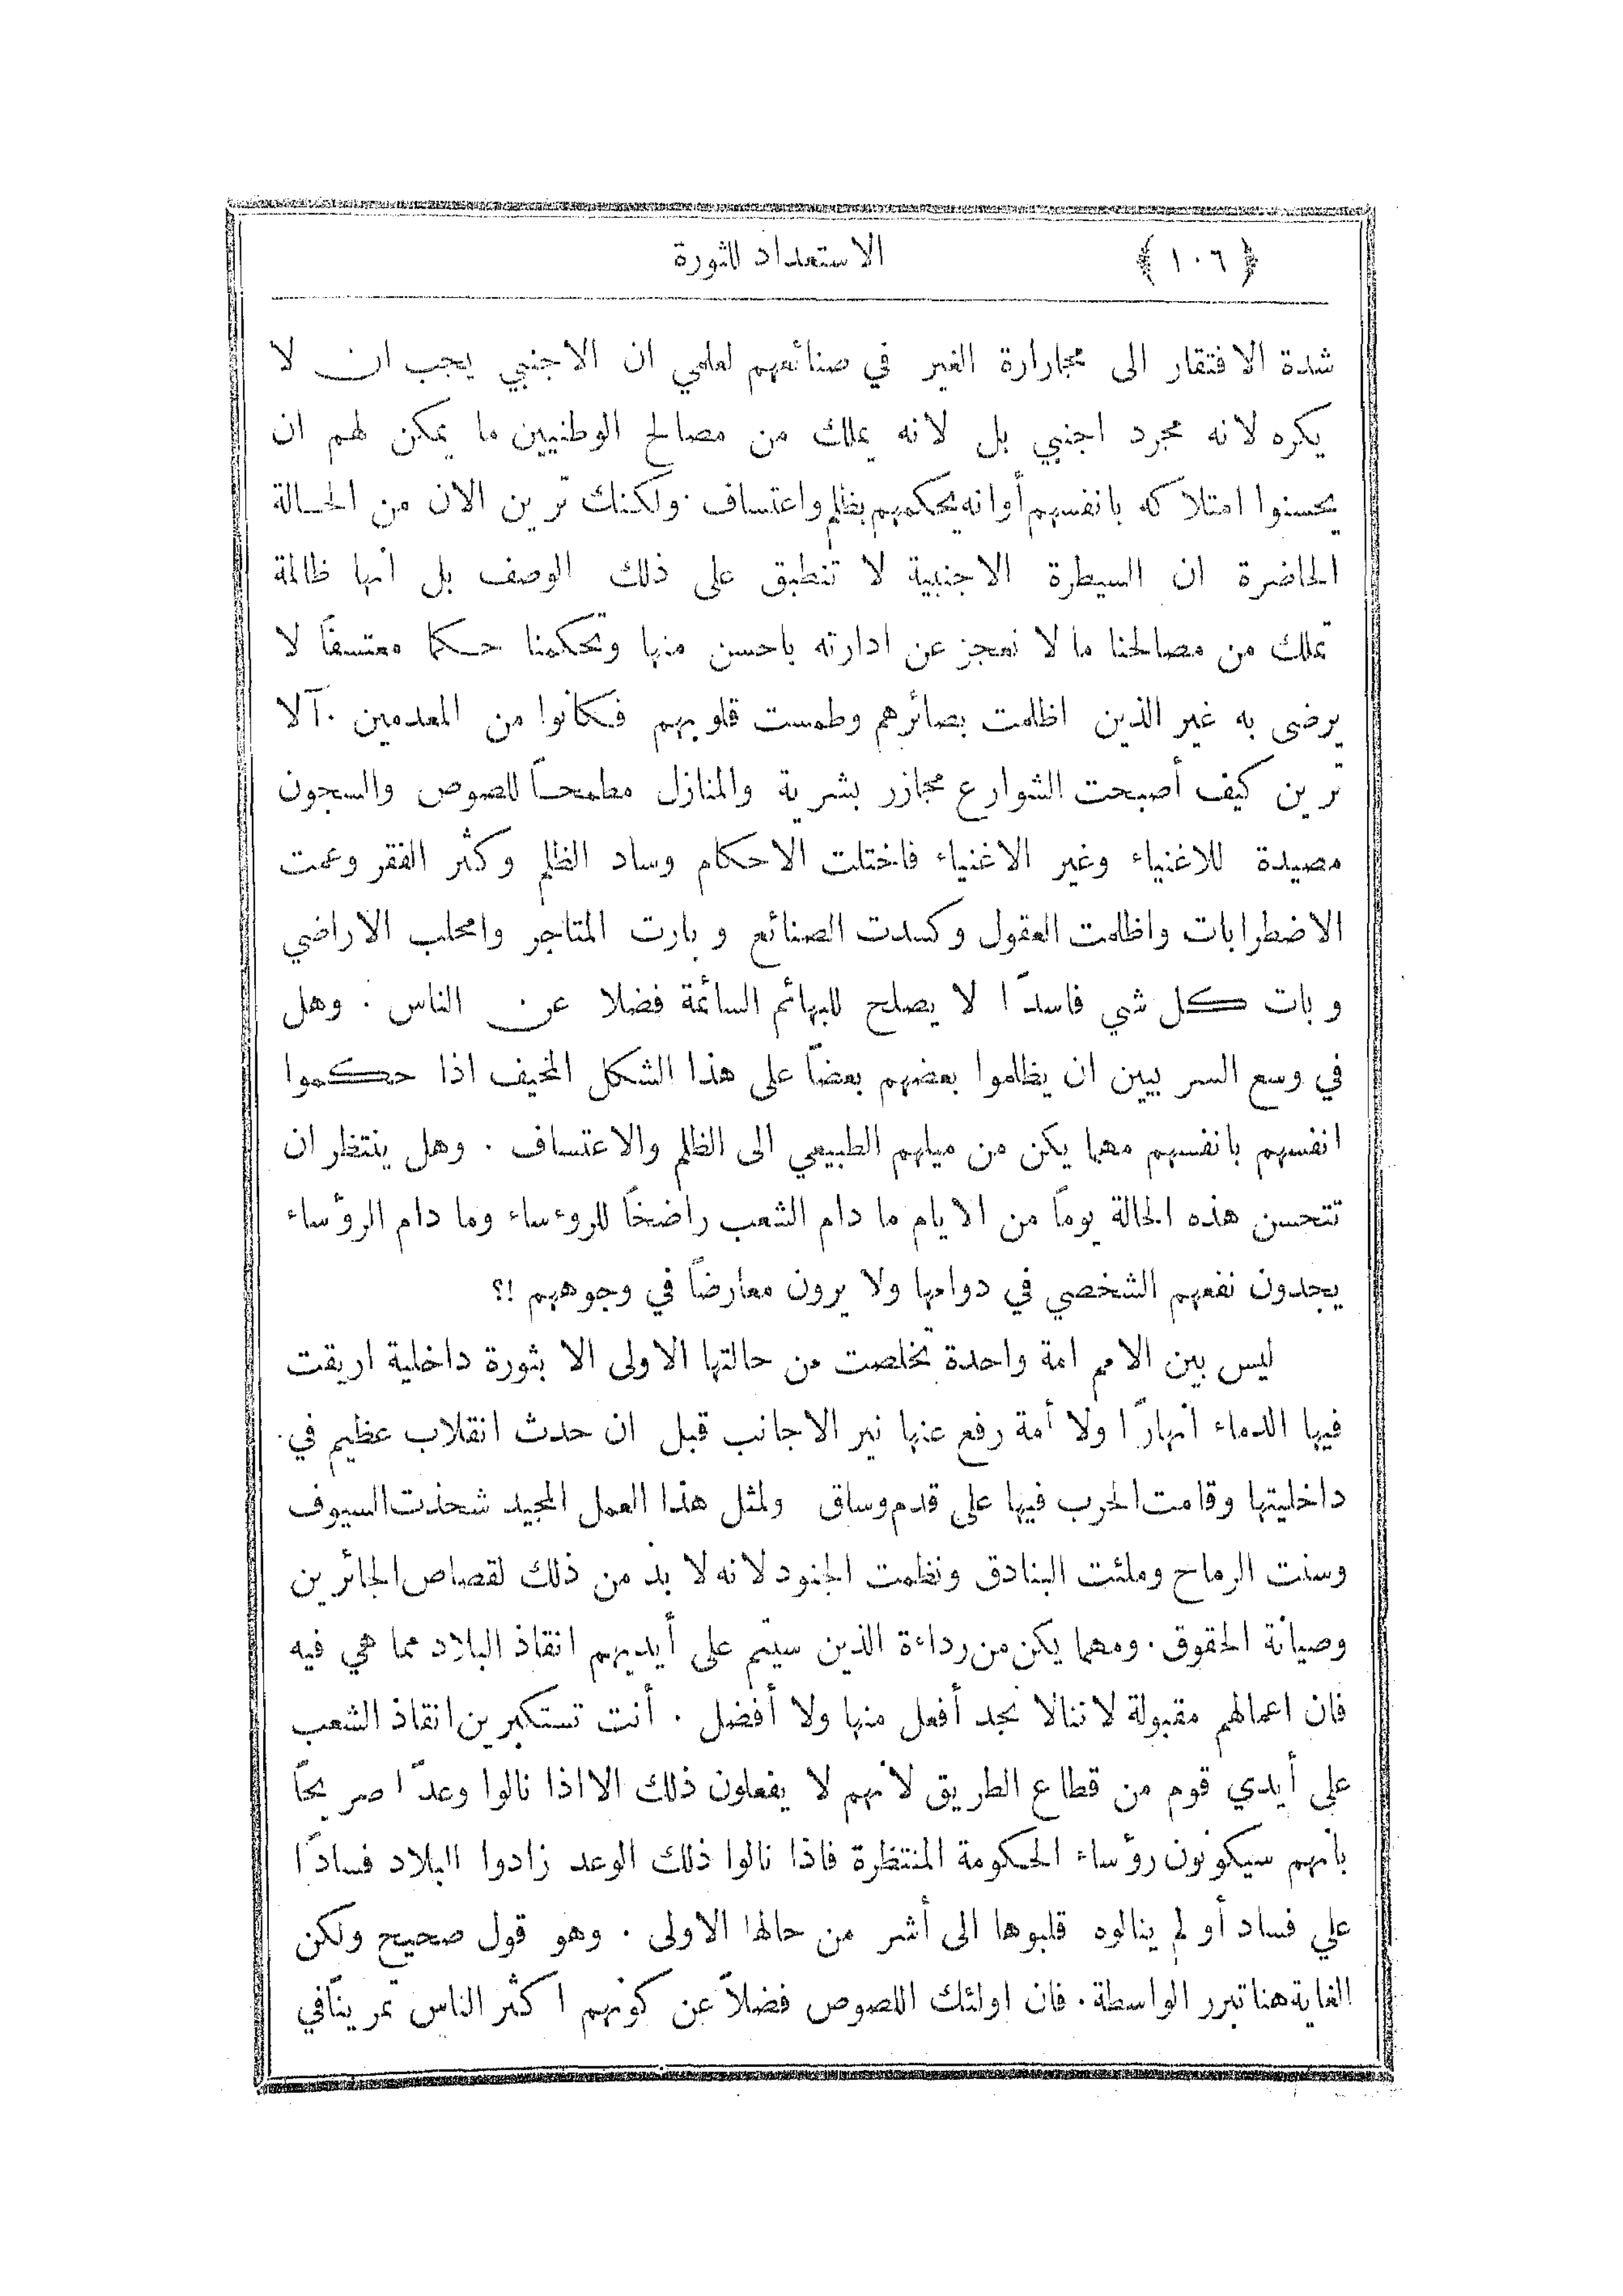 ﴿ ١٠٦ ﴾ الاستعداد للثورة
شدة الافتقار الى مجارارة الغير في صنائعهم لعلمي ان الاجنبي يجب ان لا
يكره لانه مجرد اجنبي بل لانه يملك من مصالح الوطنيين ما يمكن لهم ان
يحسنوا امتلاكه بانفسهم أوانه يحكمهم بظلم واعتساف . ولكنك ترين الان من الحالة
الحاضرة ان السيطرة الاجنبية لا تنطبق على ذلك الوصف بل انها ظالمة
تملك من مصالحنا ما لا نعجز عن ادارته باحسن منها وتحكمنا حكما معتسفاً لا
يرضى به غير الذين اظلمت بصائرهم وطمست قلوبهم فكانوا من المعدمين . آلا
ترين كيف أصبحت الشوارع مجازر بشرية والمنازل مطمحاً للصوص والسجون
مصيدة للاغنياء وغير الاغنياء فاختلت الاحكام وساد الظلم وكثر الفقر وعمت
الاضطرابات واظلمت العقول وكسدت الصنائع وبارت المتاجر وامحلب الاراضي
وبات كل شي فاسدًا لا يصلح للبهائم السائمة فضلا عن الناس . وهل
في وسع السربيين ان يظلموا بعضهم بعضاً على هذا الشكل المخيف اذا حكموا
انفسهم بانفسهم مهما يكن من ميلهم الطبيعي الى الظلم والاعتساف . وهل ينتظر ان
تتحسن هذه الحالة يوماً من الايام ما دام الشعب راضخاً للروءساء وما دام الرؤساء
يجدون نفعهم الشخصي في دوامها ولا يرون معارضاً في وجوههم !؟
ليس بين الامم امة واحدة تخلصت من حالتها الاولى الا بثورة داخلية اريقت
فيها الدماء انهارًا ولا أمة رفع عنها نير الاجانب قبل ان حدث انقلاب عظيم في
داخليتها وقامت الحرب فيها على قدم وساق ولمثل هذا العمل المجيد شحذت السيوف
وسنت الرماح وملئت البنادق ونظمت الجنود لانه لا بد من ذلك لقصاص الجائرين
وصيانة الحقوق . ومهما يكن من رداءة الذين سيتم على أيديهم انقاذ البلاد مما هي فيه
فان اعمالهم مقبولة لاننالا نجد أفعل منها ولا أفضل . أنت تستكبرين انقاذ الشعب
على أيدي قوم من قطاع الطريق لانهم لا يفعلون ذلك الا اذا نالوا وعدًا صريحاً
بانهم سيكونون رؤساء الحكومة المنتظرة فاذا نالوا ذلك الوعد زادوا البلاد فسادًا
علي فساد أو لم ينالوه قلبوها الى أشر من حالها الاولى . وهو قول صحيح ولكن
الغاية هنا تبرر الواسطة . فان اولئك اللصوص فضلاً عن كونهم اكثر الناس تمريناً في